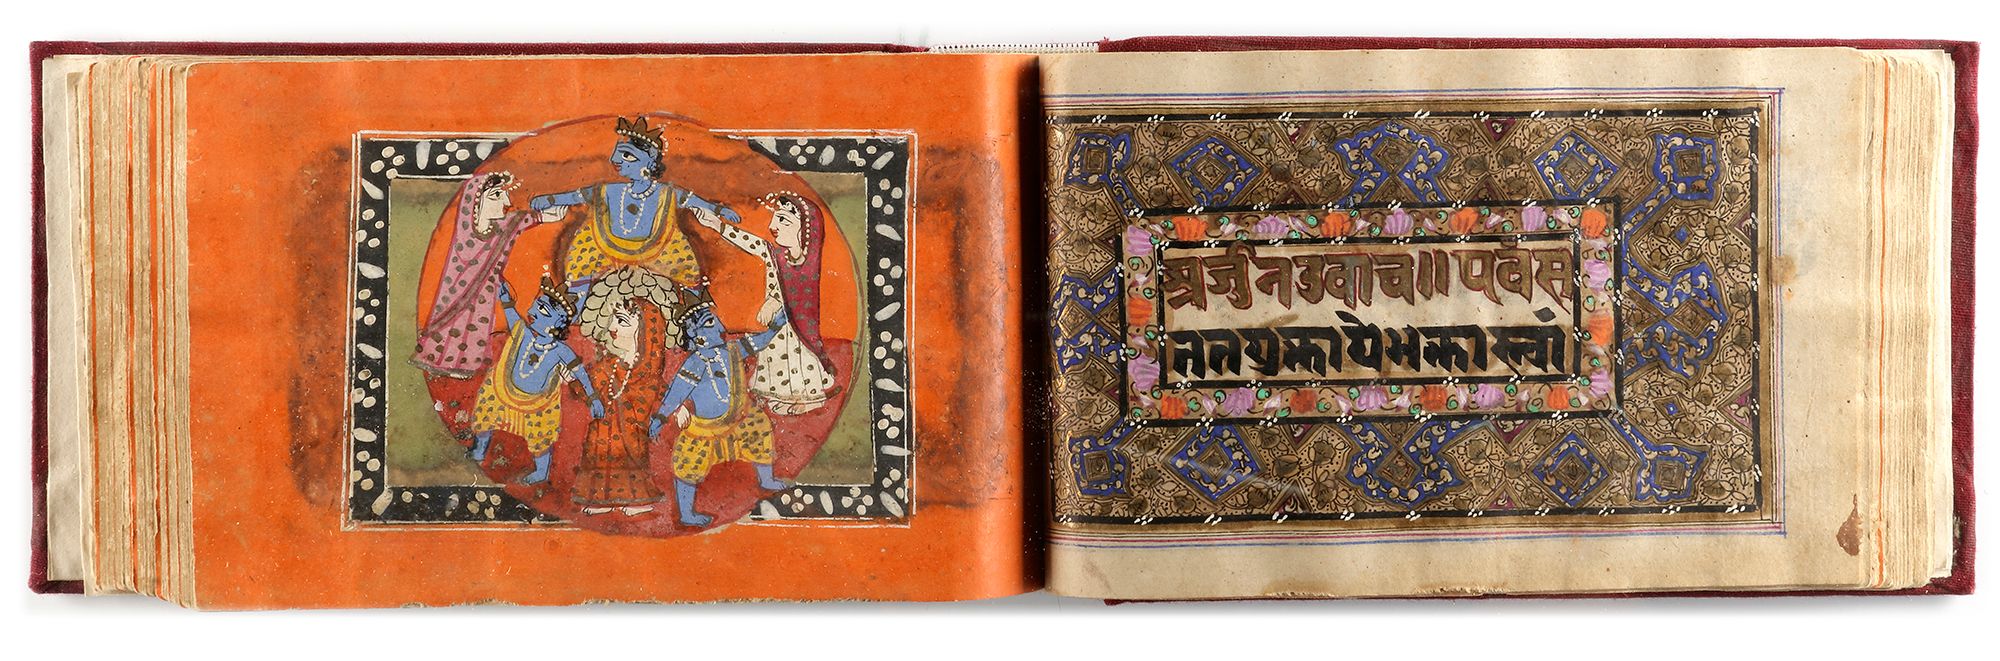 अर्जुनउवाच॥एवंस
ततयुक्तायेभक्तास्त्वां